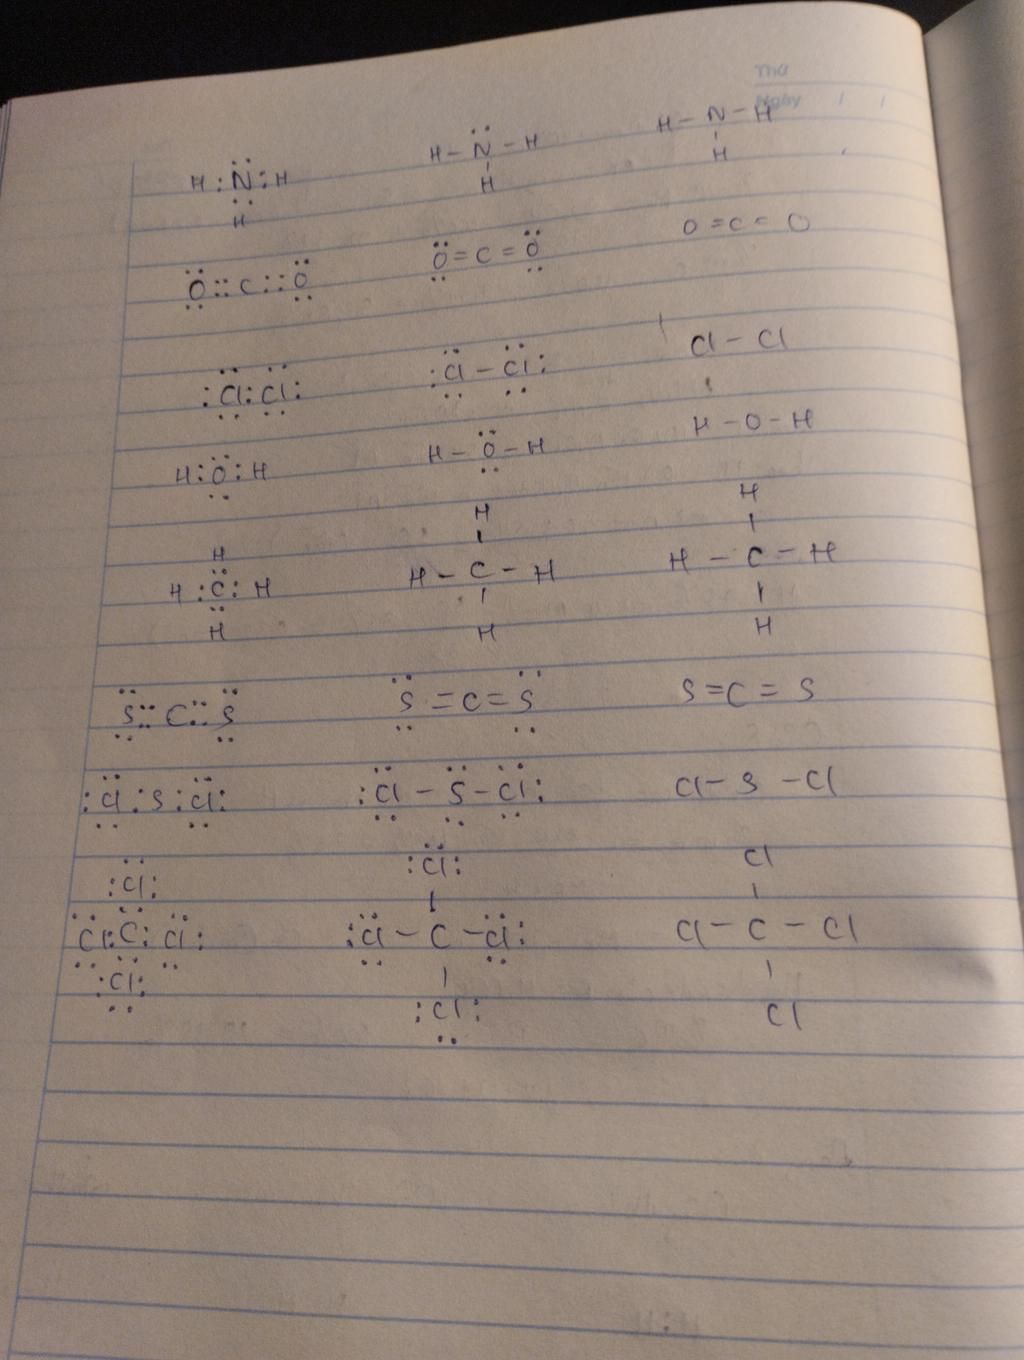 Thứ
Ngày / /
H : N̤̈ : H    H – N̈ – H    H – N – H
H    H    H
Ö̤ :: C :: Ö̤    Ö̤ = C = Ö̤    O = C = O
:C̤̈l : C̤̈l:    :C̤̈l – C̤̈l:    Cl – Cl
H : Ö̤ : H    H – Ö̤ – H    H – O – H
H    H    H
|    |
H : C̤̈ : H    H – C – H    H – C – H
|    |
H    H    H
S̤̈ :: C :: S̤̈    S̤̈ = C = S̤̈    S = C = S
:C̤̈l : S : C̤̈l:    :C̤̈l – S̤̈ – C̤̈l:    Cl – S – Cl
:C̈l:    :C̈l:    Cl
|    |
C̤̈l : C̈ : C̤̈l:    :C̤̈l – C – C̤̈l:    Cl – C – Cl
|    |
:C̤l:    :C̤l:    Cl